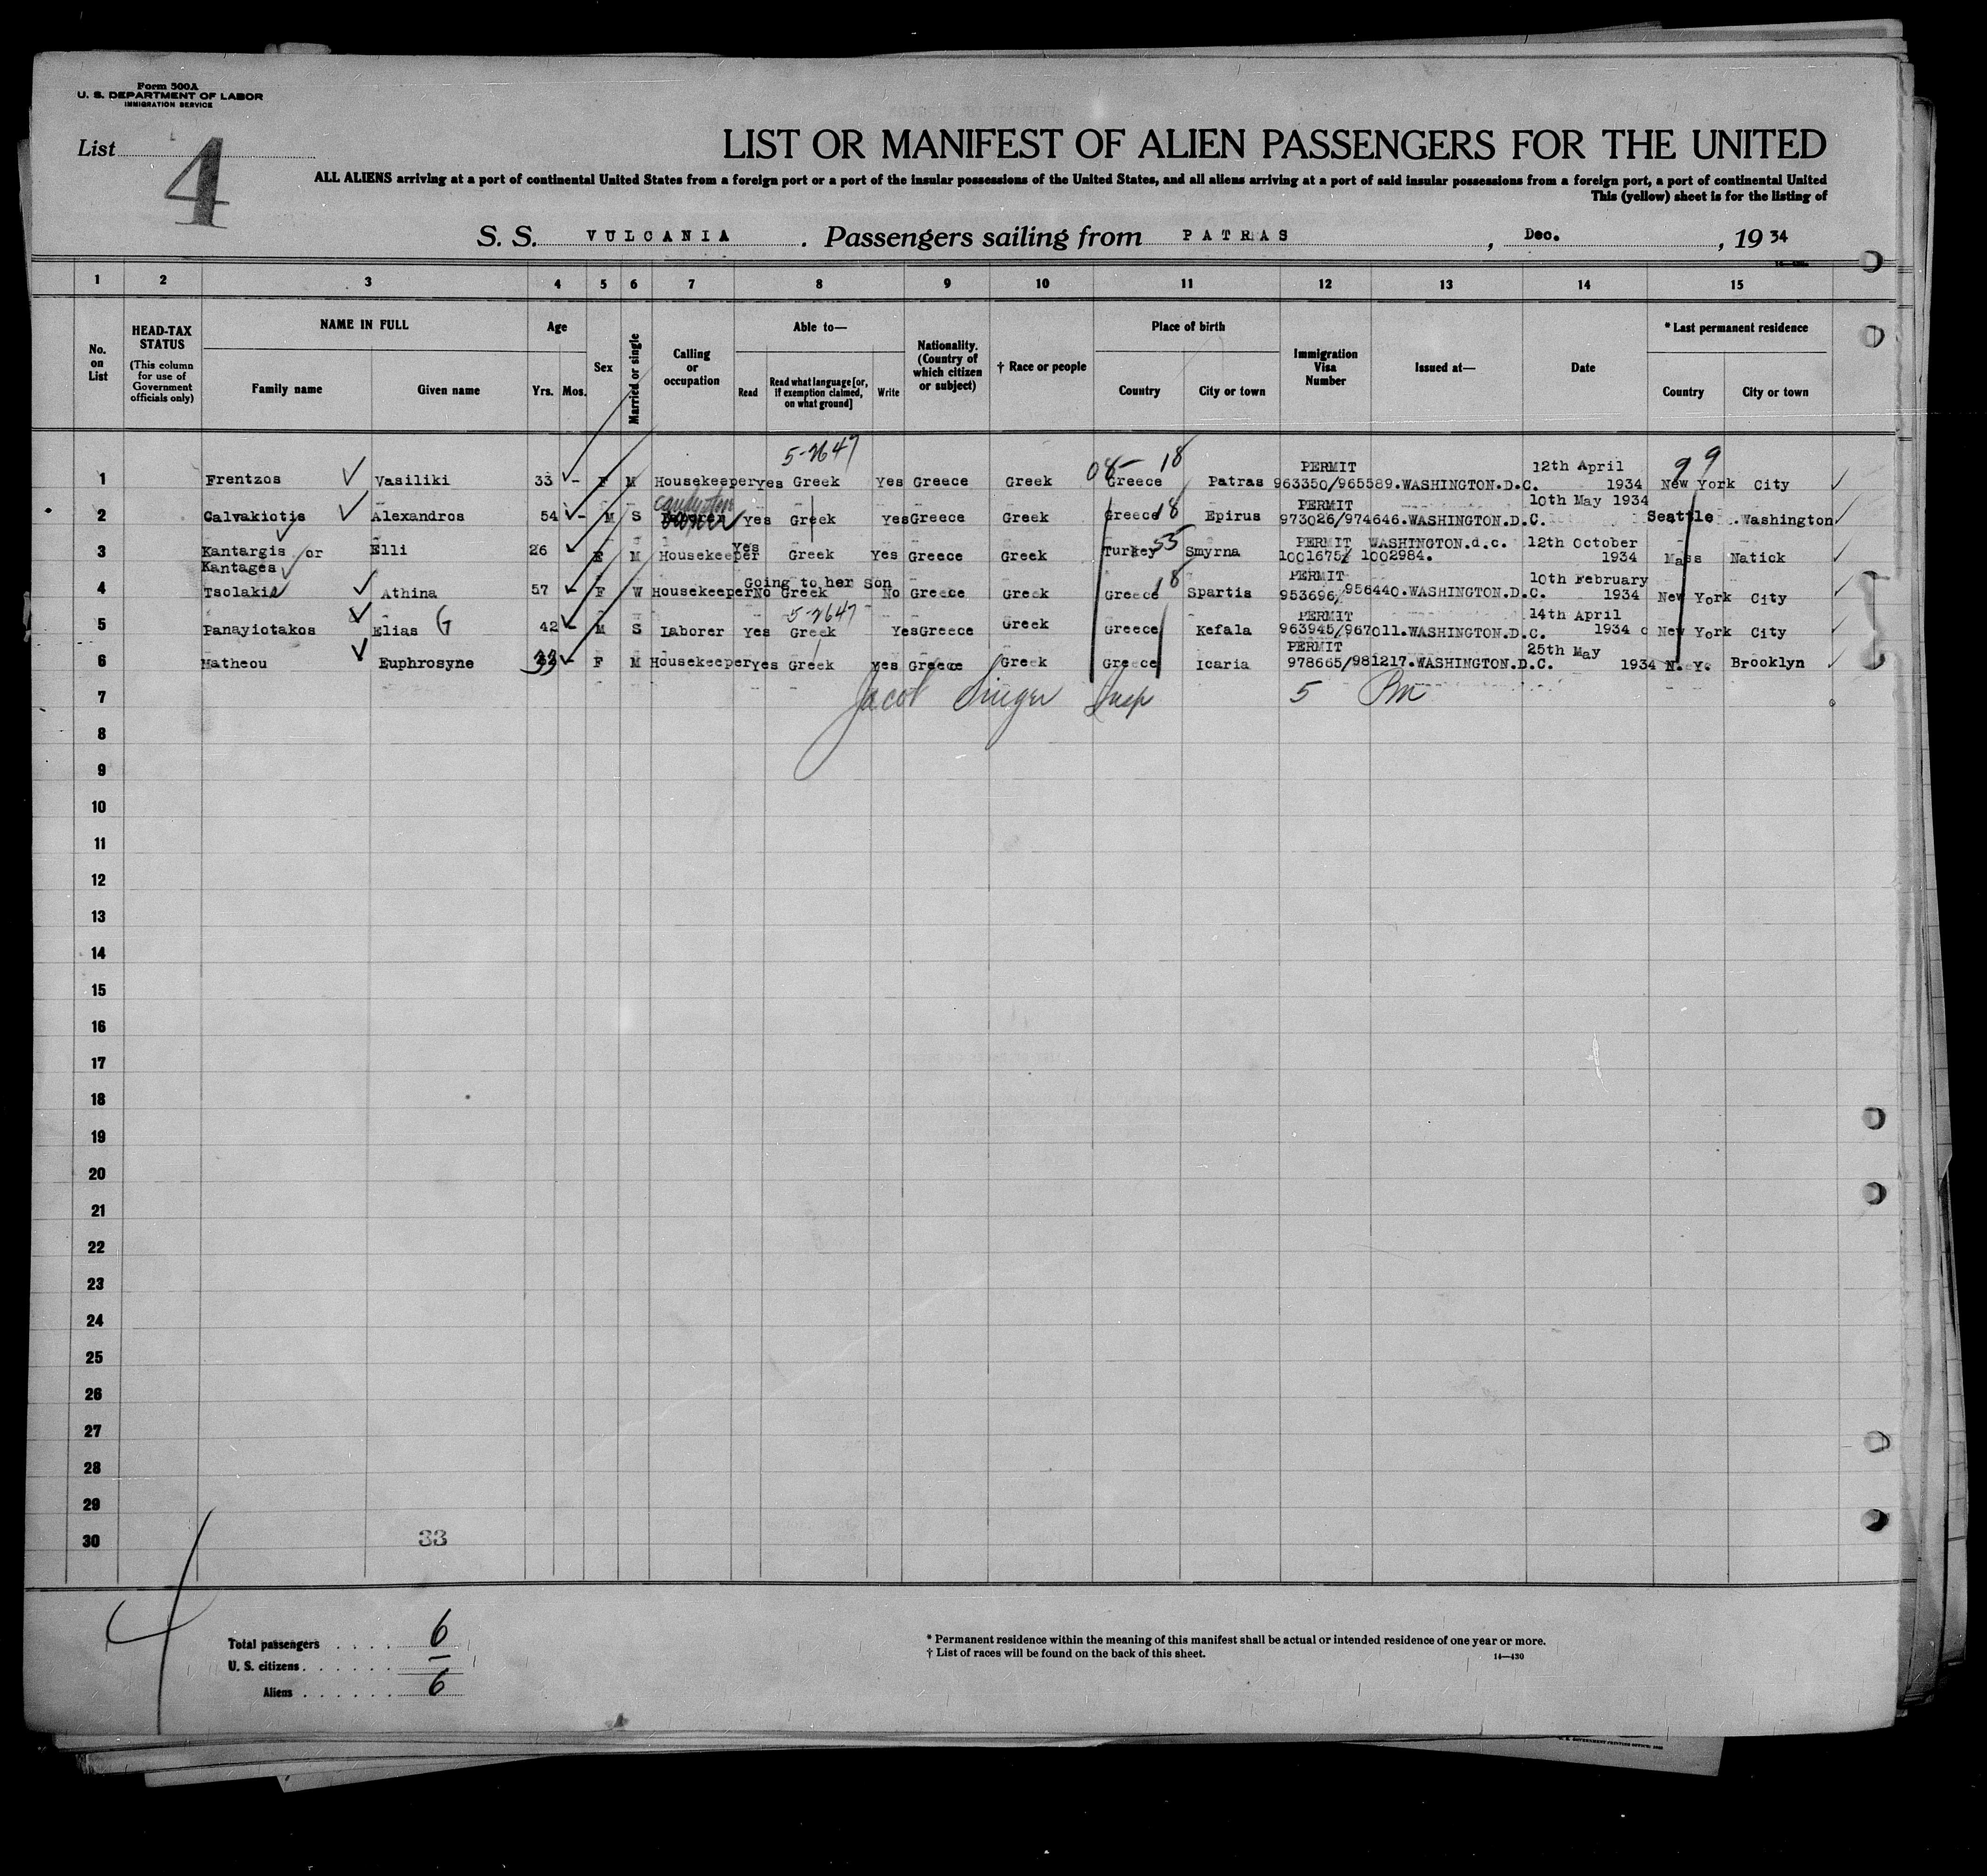 Form 500A
U. S. DEPARTMENT OF LABOR
IMMIGRATION SERVICE
List 4
LIST OR MANIFEST OF ALIEN PASSENGERS FOR THE UNITED
ALL ALIENS arriving at a port of continental United States from a foreign port or a port of the insular possessions of the United States, and all aliens arriving at a port of said insular possessions from a foreign port, a port of continental United
This (yellow) sheet is for the listing of
S. S. VULCANIA . Passengers sailing from PATRAS , Dec. , 19 34
1 2 3 4 5 6 7 8 9 10 11 12 13 14 15
No. on List
HEAD-TAX STATUS (This column for use of Government officials only)
NAME IN FULL
Family name Given name
Age
Yrs. Mos.
Sex
Married or single
Calling or occupation
Able to—
Read Read what language [or, if exemption claimed, on what ground] Write
Nationality. (Country of which citizen or subject)
† Race or people
Place of birth
Country City or town
Immigration Visa Number
Issued at—
Date
* Last permanent residence
Country City or town
5-2647 08- 18 PERMIT 12th April 99
1 Frentzos Vasiliki 33 - F M Housekeeper yes Greek Yes Greece Greek Greece Patras 963350/965589.WASHINGTON.D.C. 1934 New York City
PERMIT 10th May 1934
2 Calvakiotis Alexandros 54 - M S Yes Greek Yes Greece Greek Greece 18 Epirus 973026/974646.WASHINGTON.D.C. Seattle .Washington
3 Kantargis or Kantages Elli 26 F M Housekeeper Yes Greek Yes Greece Greek Turkey 55 Smyrna PERMIT WASHINGTON.d.c. 12th October
1001675/ 1002984. 1934 Mass Natick
Going to her son PERMIT 10th February
4 Tsolakis Athina 57 - F W Housekeeper No Greek No Greece Greek Greece 18 Spartis 953696/956440.WASHINGTON.D.C. 1934 New York City
5-2647 PERMIT 14th April
5 Panayiotakos Elias G 42 - M S Laborer Yes Greek Yes Greece Greek Greece Kefala 963945/967011.WASHINGTON.D.C. 1934 New York City
PERMIT 25th May
6 Matheou Euphrosyne 33 - F M Housekeeper yes Greek yes Greece Greek Greece Icaria 978665/981217.WASHINGTON.D.C. 1934 N. Y. Brooklyn
7 Jacob Singer Insp 5
8
9
10
11
12
13
14
15
16
17
18
19
20
21
22
23
24
25
26
27
28
29
30 33
4
Total passengers 6
U. S. citizens —
Aliens 6
* Permanent residence within the meaning of this manifest shall be actual or intended residence of one year or more.
† List of races will be found on the back of this sheet.
14—430